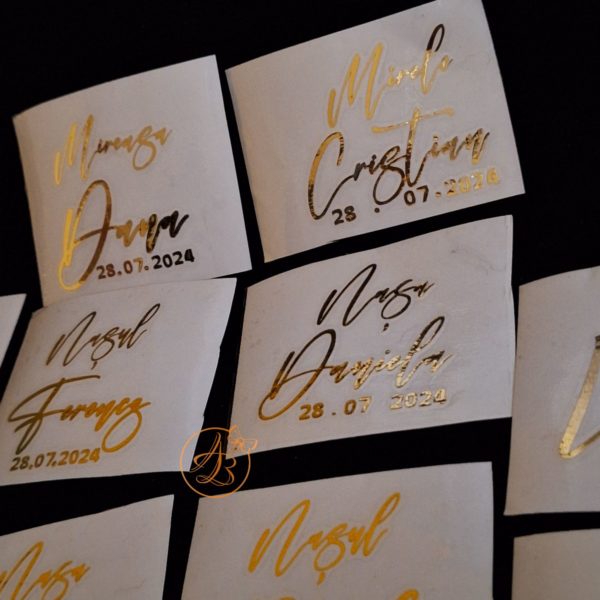 Mireasa
Dana
28.07.2024
Mirele
Cristian
28.07.2024
Nașul
Ferencz
28.07.2024
Nașa
Daniela
28.07 2024
Nașa
Nașul